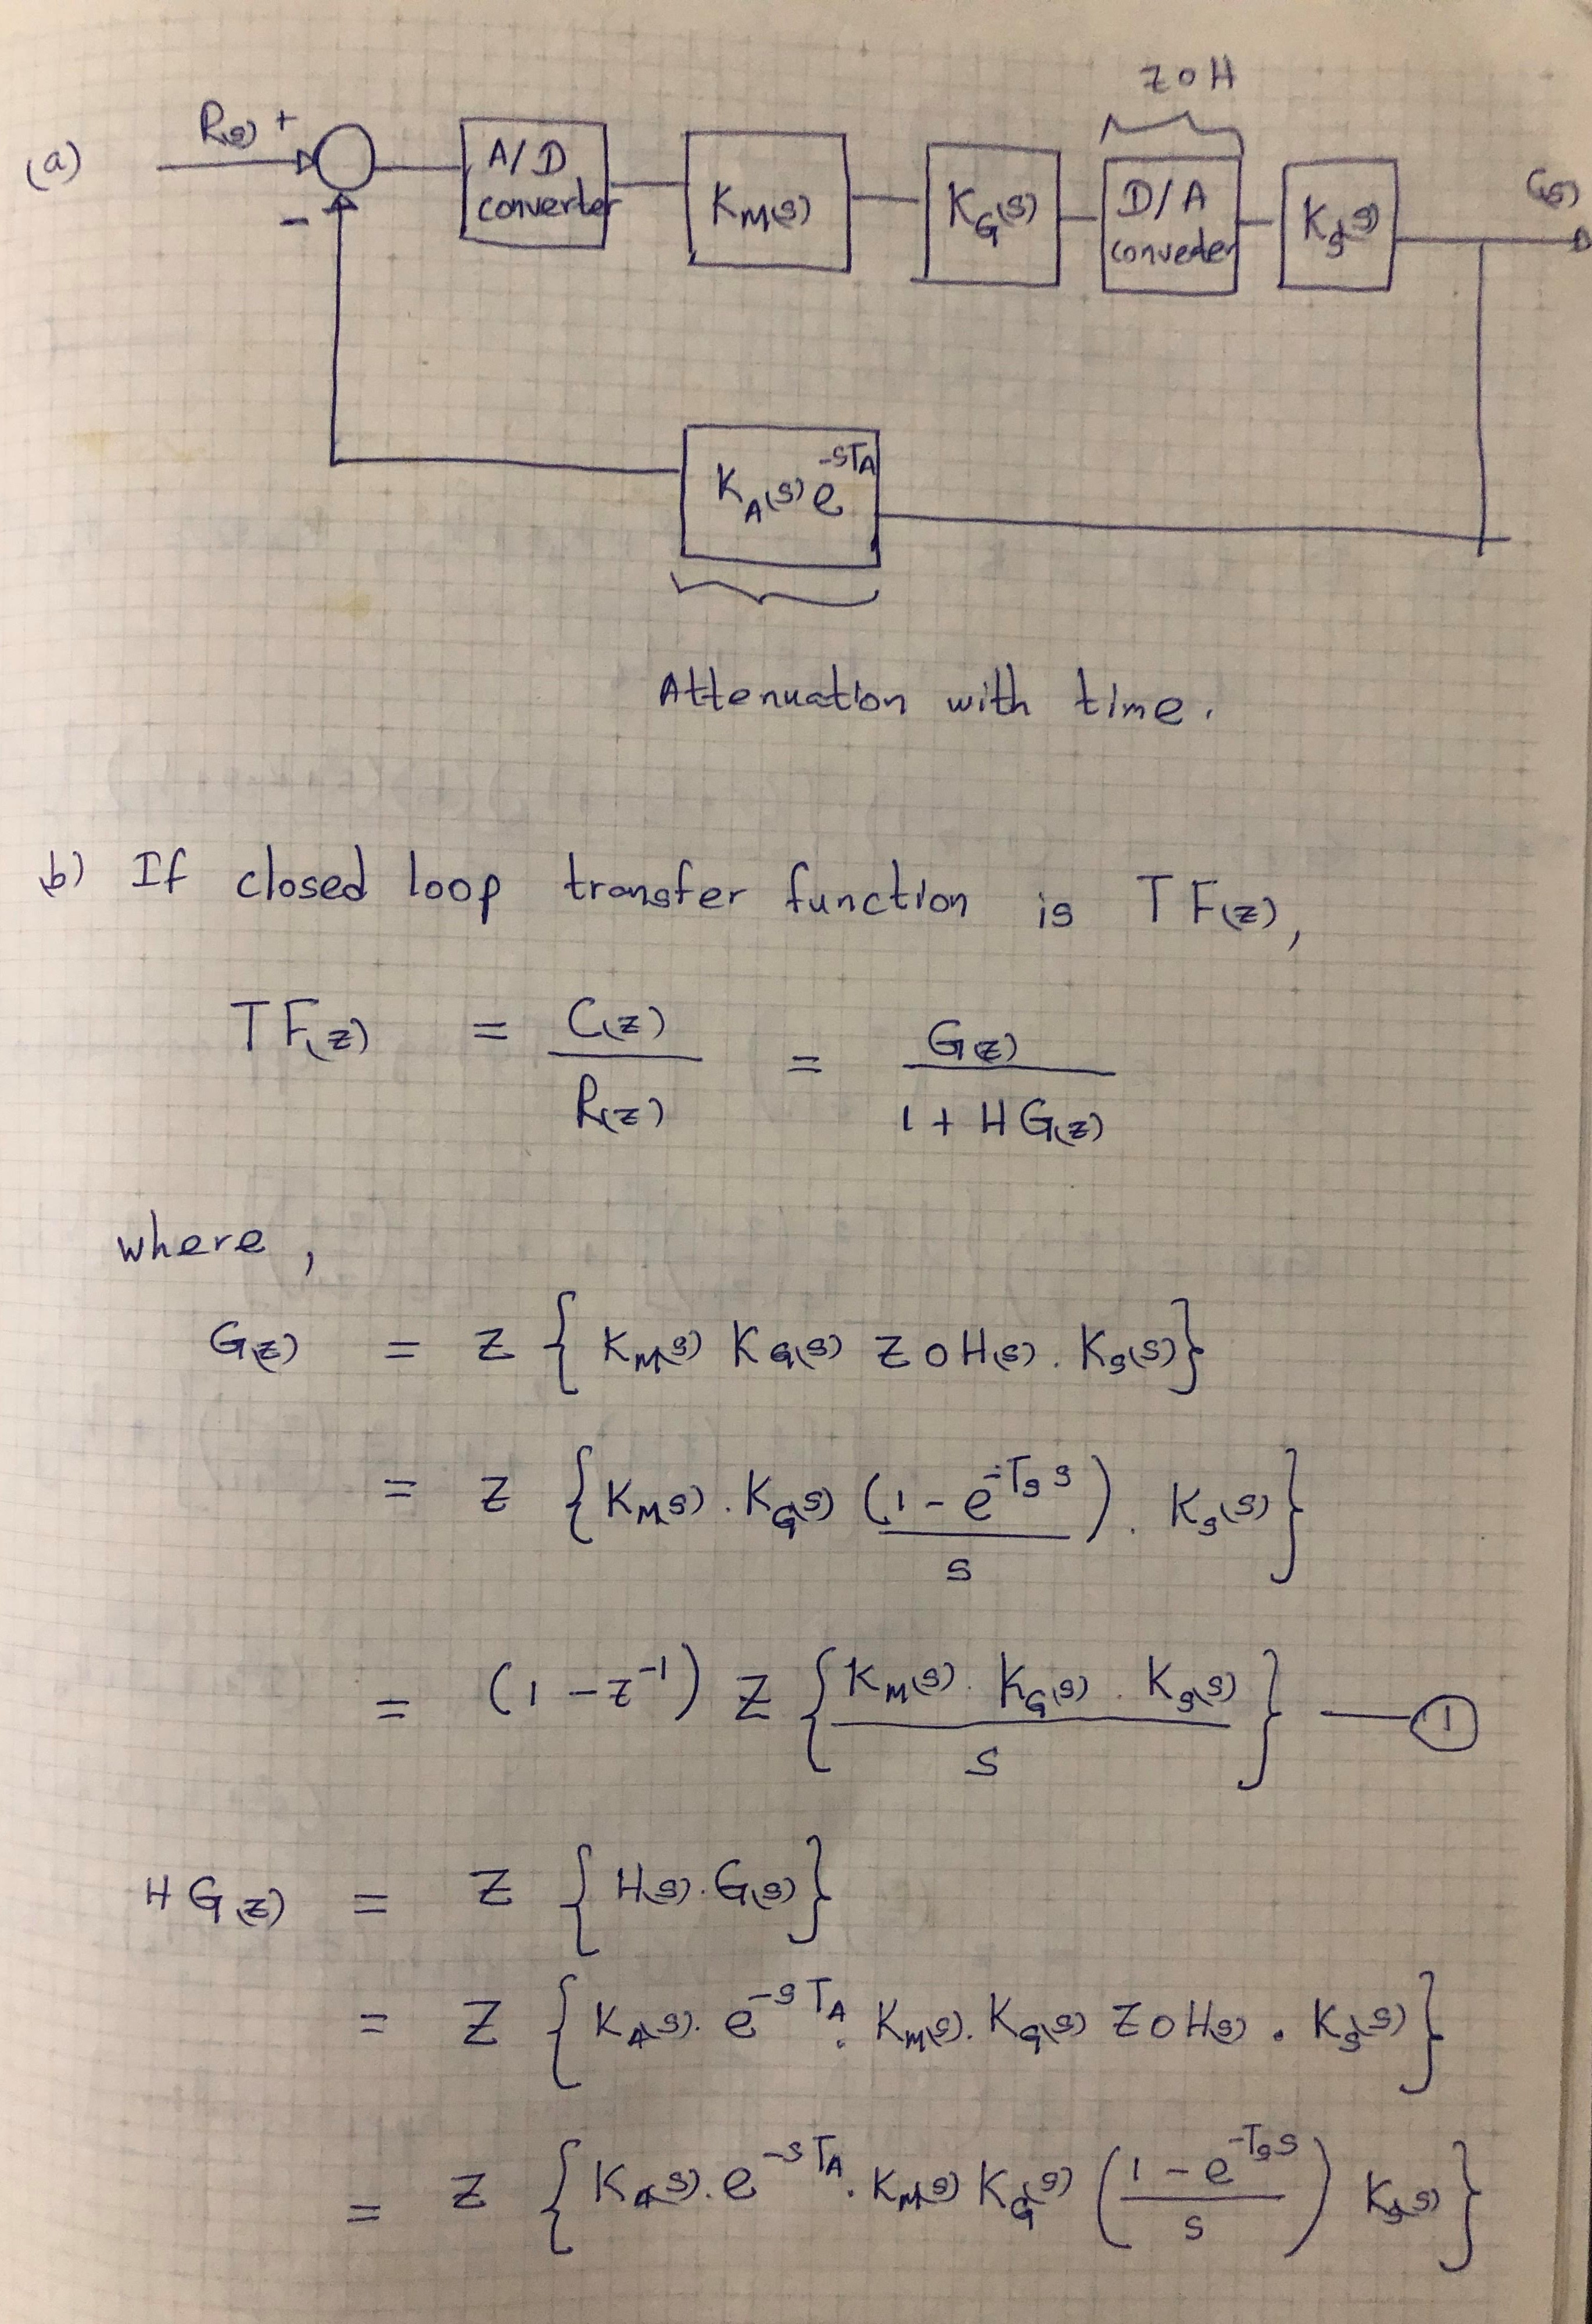 ZOH
(a) R(s) + A/D converter K_M(s) K_G(s) D/A converter K_s(s) C(s)
-
K_A(s) e^{-sT_A}
Attenuation with time.
b) If closed loop transfer function is TF(z),
TF(z) = C(z) / R(z) = G(z) / 1 + HG(z)
where,
G(z) = Z { K_M(s) K_G(s) ZOH(s) . K_s(s) }
= Z { K_M(s) . K_G(s) (1 - e^{-T_s s}) / s . K_s(s) }
= (1 - z^{-1}) Z { K_M(s) . K_G(s) . K_s(s) / s } — ①
HG(z) = Z { H(s) . G(s) }
= Z { K_A(s) . e^{-sT_A} . K_M(s) . K_G(s) ZOH(s) . K_s(s) }
= Z { K_A(s) . e^{-sT_A} . K_M(s) K_G(s) ( 1 - e^{-T_s s} / s ) K_s(s) }